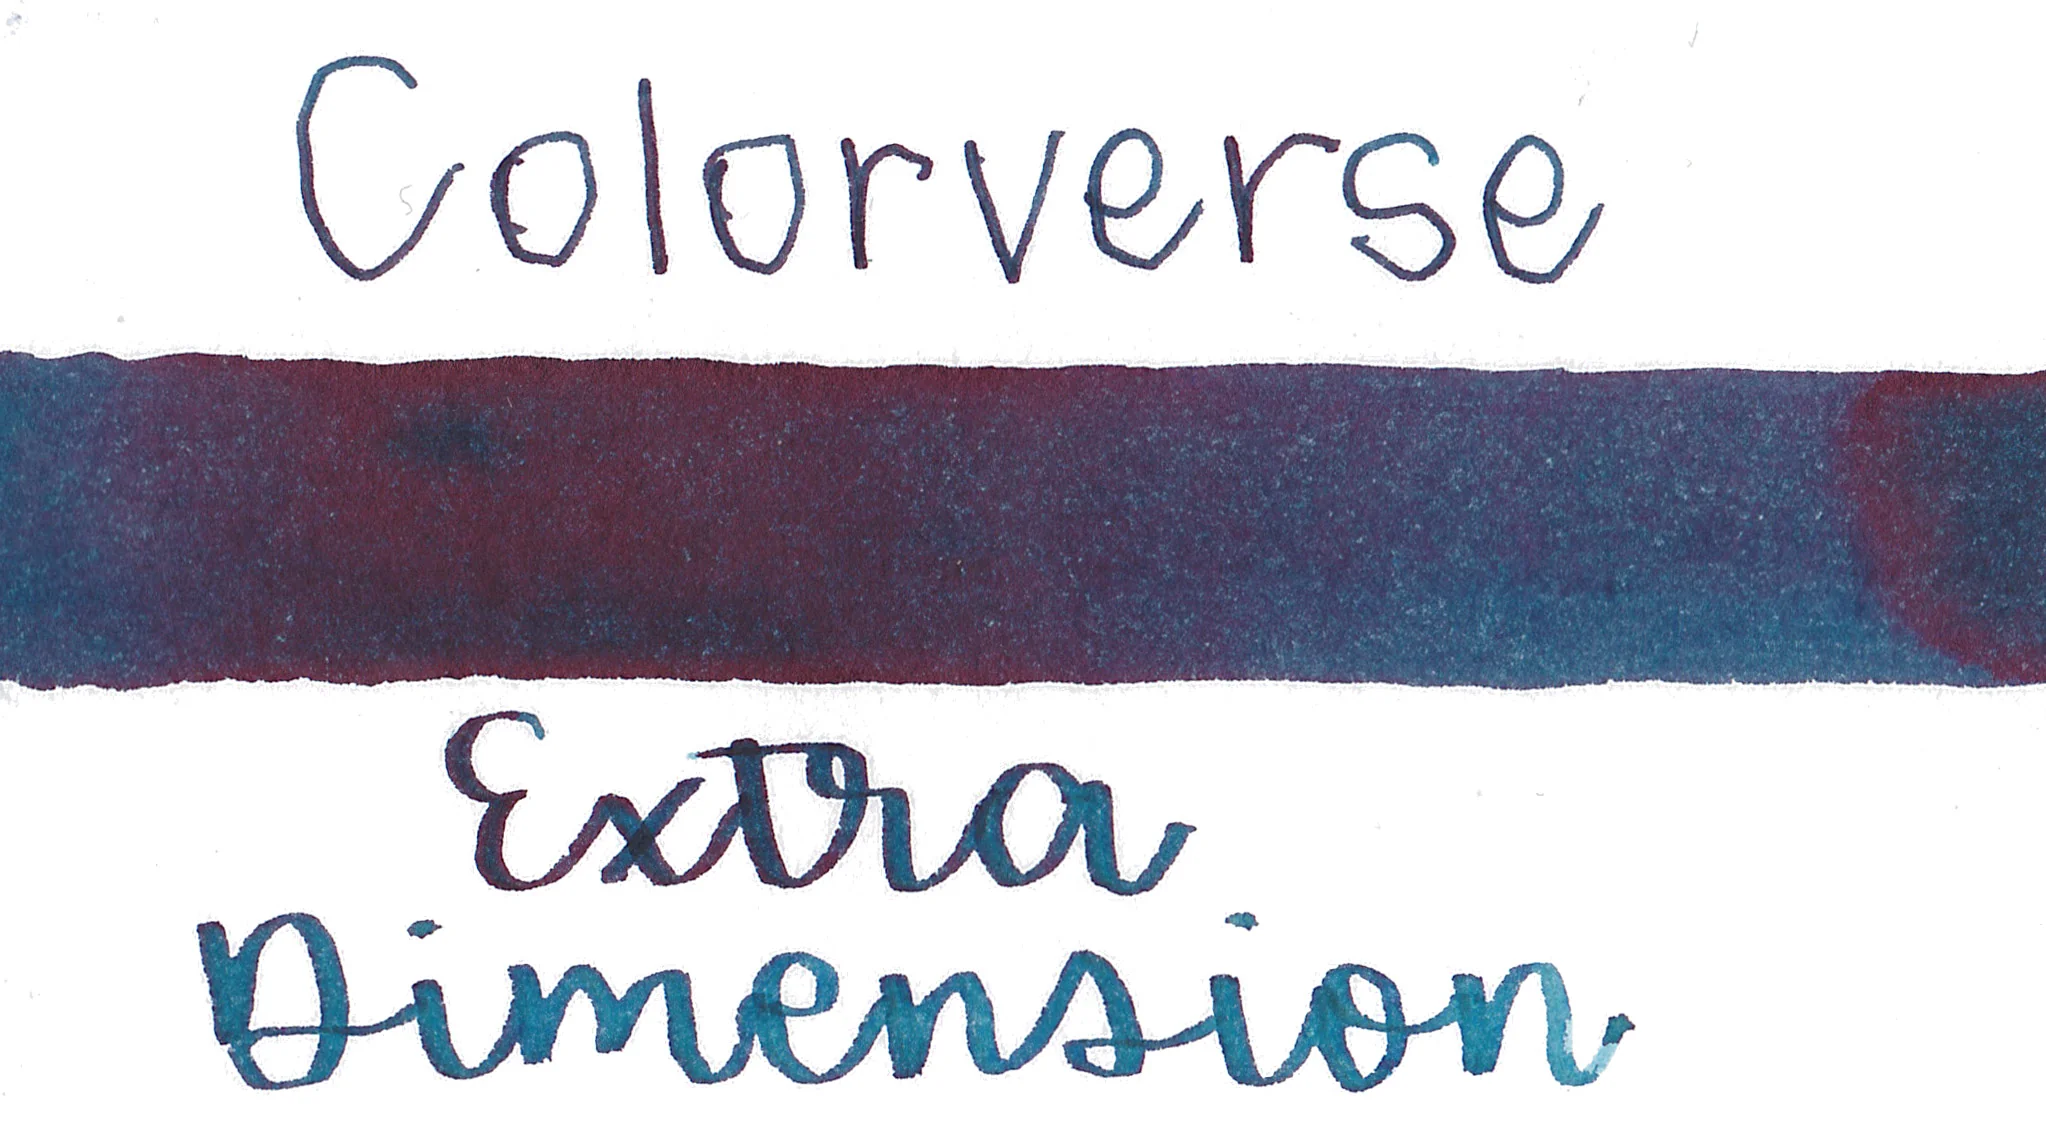 Colorverse
Extra
Dimension